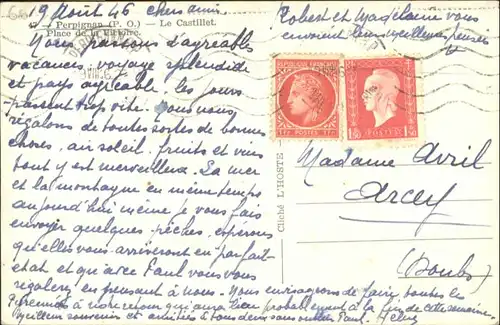 19 Août 46 chers amis
Perpignan (P. O.) — Le Castillet.
Place de la Victoire.
Nous passons d'agréables
vacances, voyage splendide
et pays agréable. les jours
passent trop vite. Nous nous
régalons de toutes sortes de bonnes
choses, air soleil, fruits et vins
tout y est merveilleux. La mer
et la montagne en même temps
aujourd'hui même je vous fais
envoyer quelques pêches, espérons
qu'elles vous arriveront en parfait
état et qu'avec Paul vous vous
régalerez en pensant à nous. Nous envisageons de faire toutes les
Pyrénées à notre retour qui aura lieu probablement à la fin de cette semaine
Meilleurs souvenirs et amitiés à tous deux sans oublier Paul.
Robert et Madeleine vous
envoient leurs meilleures pensées
REPUBLIQUE FRANCAISE
1F POSTES 1F
1f50 POSTES 1f50
Cliché L'HOSTE
Madame Avril
Arcey
(Doubs)